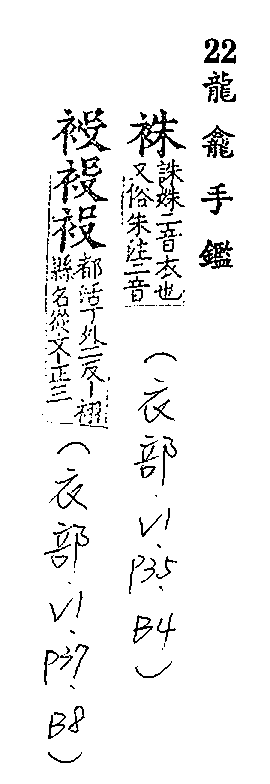 22龍龕手鑑
袾誅姝二音衣也
又俗朱注二音
（衣部.V1.P35.B4）
祋都活丁外二反–祤
縣名從文–正三
（衣部.V1.P37.B8）